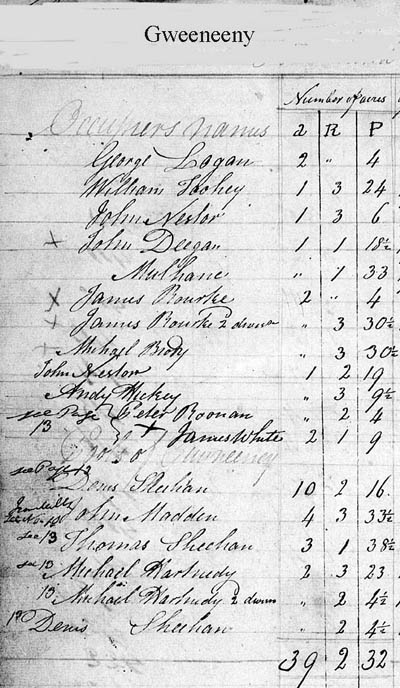 Gweeneeny
Number of acres
Occupiers names a R P
George Logan 2 " 4
William Toohey 1 3 24
John Nestor 1 3 6
x John Deegan 1 1 18½
Mulhane " 1 33
x James Rourke 2 " 4
x James Rourke 2 divn " 3 30½
x Michael Brody " 3 30½
John Nestor 1 2 19
Andy Hickey " 3 9½
see Page 13 Peter Roonan " 2 4
x James White 2 1 9
Gweeneeny
see Page 13
Denis Sheehan 10 2 16
John Madden 4 3 33½
see 13 Thomas Sheehan 3 1 38½
see 13 Michael Hartnedy 2 3 23
13 Michael Hartnedy 2 divn " 2 4½
Denis Sheehan " 2 4½
39 2 32